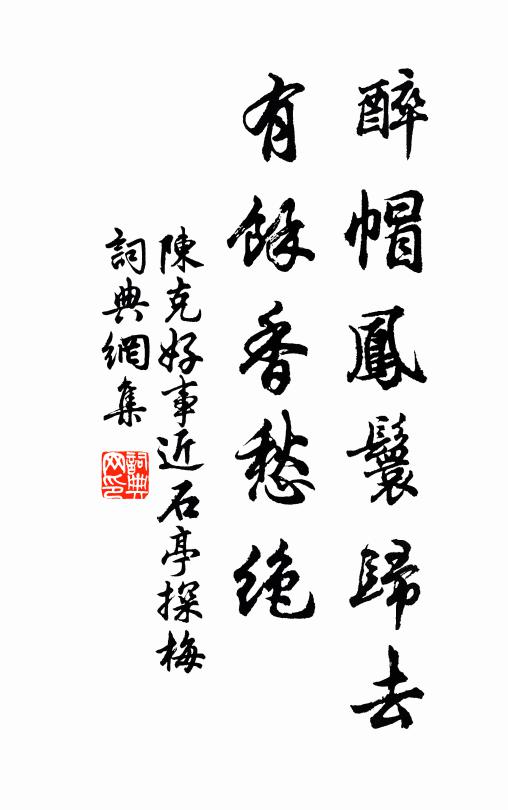 醉帽鳳鬟歸去
有餘香愁絶
陳克好事近石亭探梅
詞典網集
詞典网印